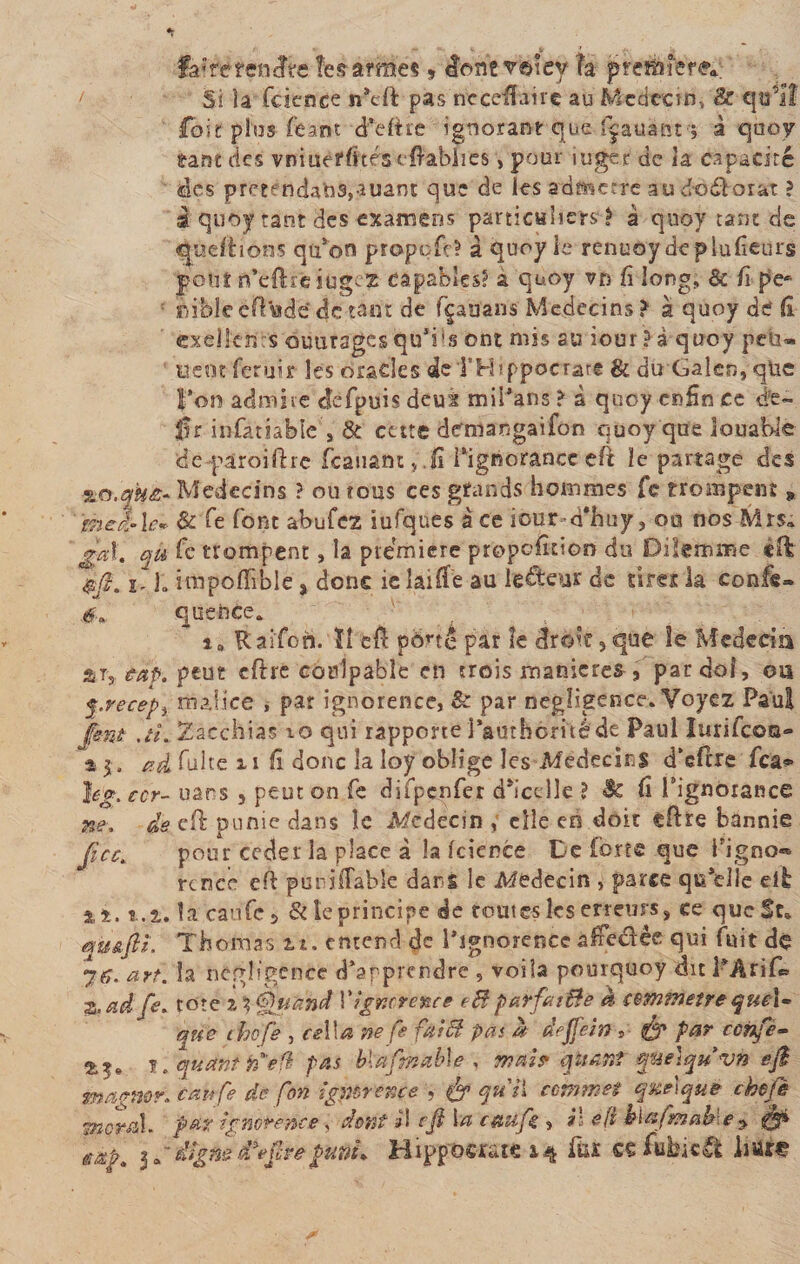 faire rendre les armes, dont voicy la premiere.
Si la science n'est pas necessaire au Medecin, & qu'il
soit plus seant d'estre ignorant que sçauant; à quoy
tant des vniuersités establies, pour iuger de la capacité
des pretendans, auant que de les admettre au doctorat ?
à quoy tant des examens particuliers ? à quoy tant de
questions qu'on propose? à quoy le renuoy de plusieurs
pour n'estre iugez capables? à quoy vn si long, & si pe-
nible estude de tant de sçauans Medecins ? à quoy de si
exellents ouurages qu'ils ont mis au iour ? à quoy peu-
uent seruir les oracles de l'Hippocrate & du Galen, que
l'on admire despuis deux mil'ans ? à quoy enfin ce de-
sir insatiable, & cette demangaison quoy que louable
de paroistre scauant, si l'ignorance est le partage des
20. que- Medecins ? ou tous ces grands hommes se trompent,
med-lc- & se sont abusez iusques à ce iour-d'huy, ou nos Mrs.
gal. qu se trompent, la premiere proposition du Dilemme est
est. 1. l. impossible, donc ie laisse au lecteur de tirer la conse-
6. quence.
2. Raison. Il est porté par le droit, que le Medecin
21, cap. peut estre coulpable en trois manieres, par dol, ou
5.recep, malice, par ignorence, & par negligence. Voyez Paul
sent .ti. Zacchias 10 qui rapporte l'authorité de Paul Iuriscon-
23. ad sulte 21 si donc la loy oblige les Medecins d'estre sca-
leg. cor- uans, peut on se dispenser d'icelle ? & si l'ignorance
ne. de est punie dans le Medecin, elle en doit estre bannie
sicc. pour ceder la place à la science De sorte que l'igno-
rence est punissable dans le Medecin, parce qu'elle est
22. 1.2. la cause, & le principe de toutes les erreurs, ce que St.
quæsti. Thomas 22. entend de l'ignorence affectée qui suit de
76. art. la negligence d'apprendre, voila pourquoy dit l'Aris-
2. ad se. tote 23 Quand l'ignorence est parfaitte à commetre quel-
que chose, cella ne se faict pas à dessein, & par conse-
23. 1. quant n'est pas blasmable, mais quant quelqu'vn est
magnor. cause de son ignorence, & qu'il commet quelque chose
moral. par ignorence, dont il est la cause, il est blasmable, &
cap. 3. digne d'estre puni. Hippocrate 24 sur ce subiect liure